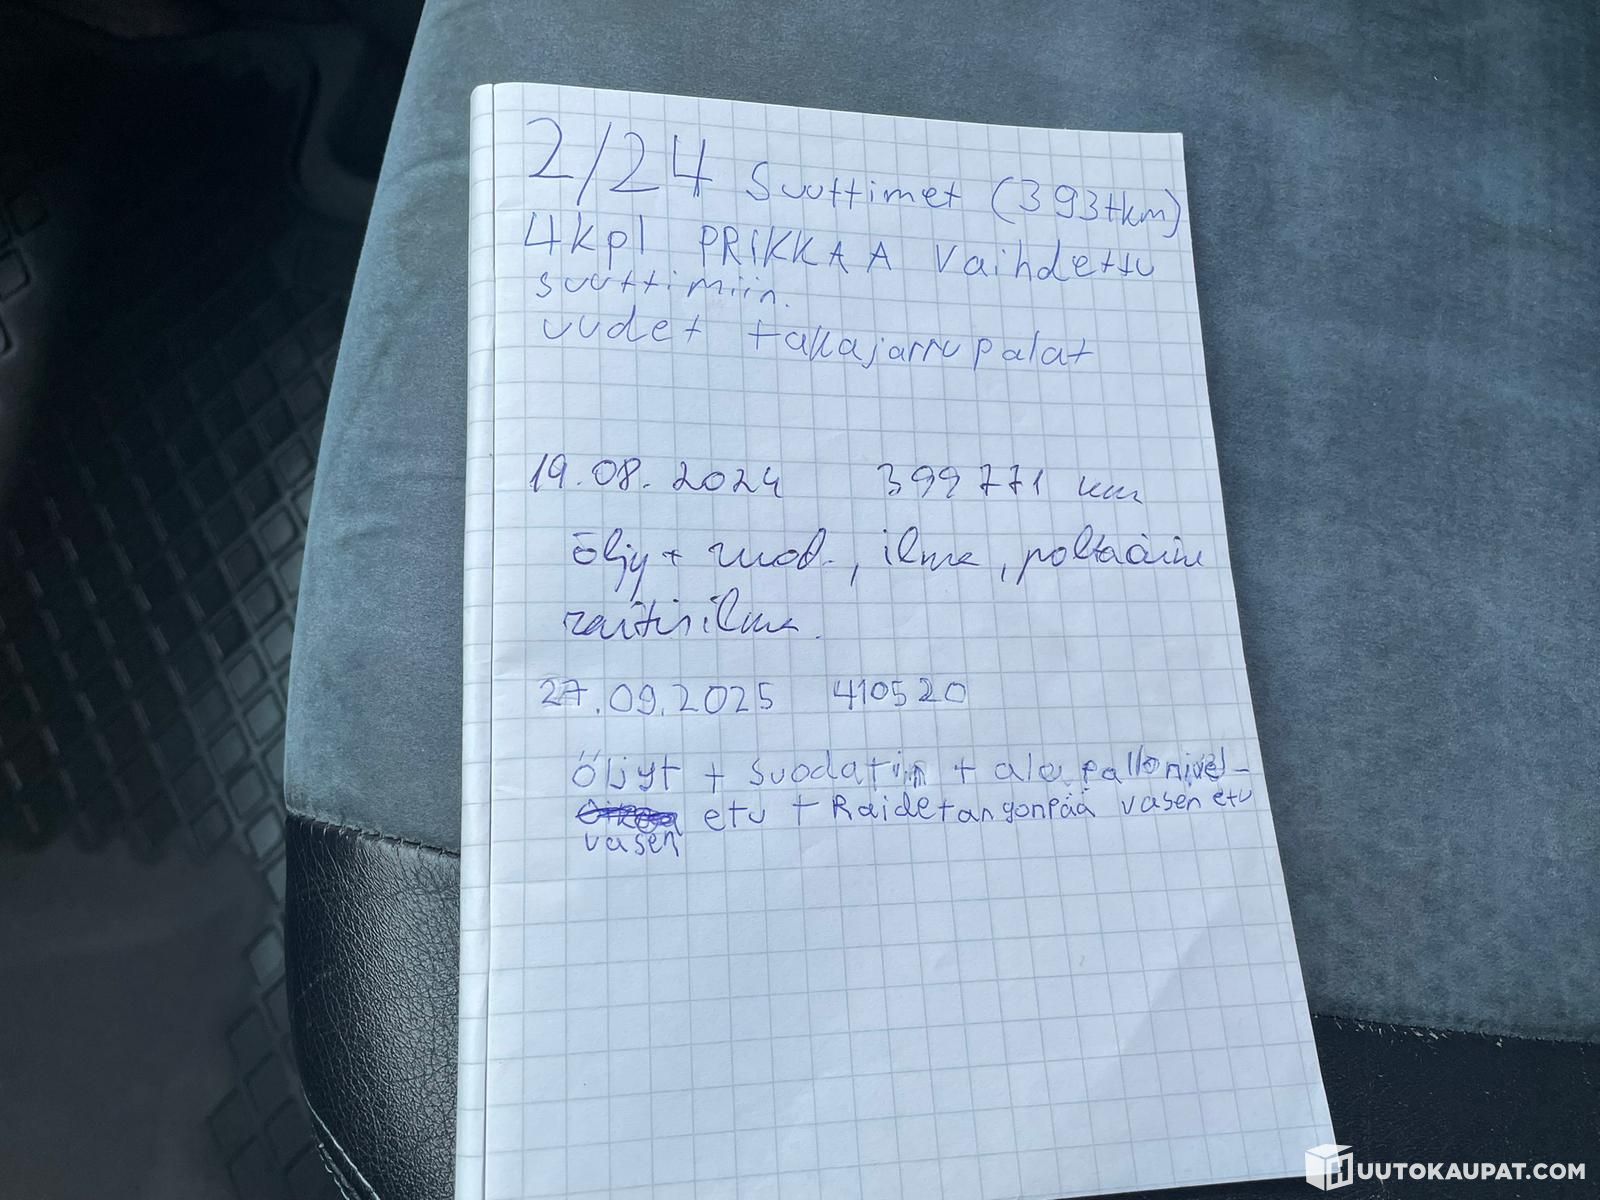 2/24 Suuttimet (393tkm)
4kpl PRIKKAA Vaihdettu
suuttimiin.
uudet takajarrupalat
19.08.2024 399771 km
öljy + suod., ilma, polttoaine
raitisilma.
27.09.2025 410520
Öljyt + Suodatin + ala pallonivel-
etu + Raidetangonpää vasen etu
vasen
HUUTOKAUPAT.COM